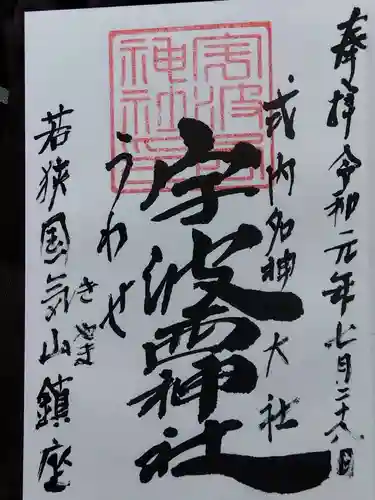 奉拝 令和元年七月二十八日
式内名神大社
宇波西神社
うわせ
若狭国気山鎮座
きやま
宇波西
神社